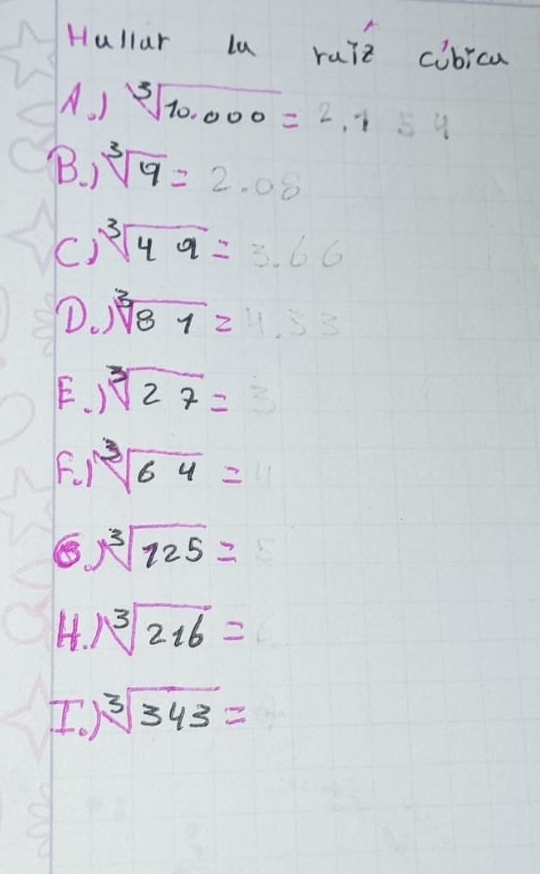 Hallar la raíz cúbica
A.) ∛10.000 = 2.154
B.) ∛9 = 2.08
C.) ∛49 = 3.66
D.) ∛81 = 4.33
E.) ∛27 = 3
F.) ∛64 = 4
G.) ∛125 = 5
H.) ∛216 = 6
I.) ∛343 =